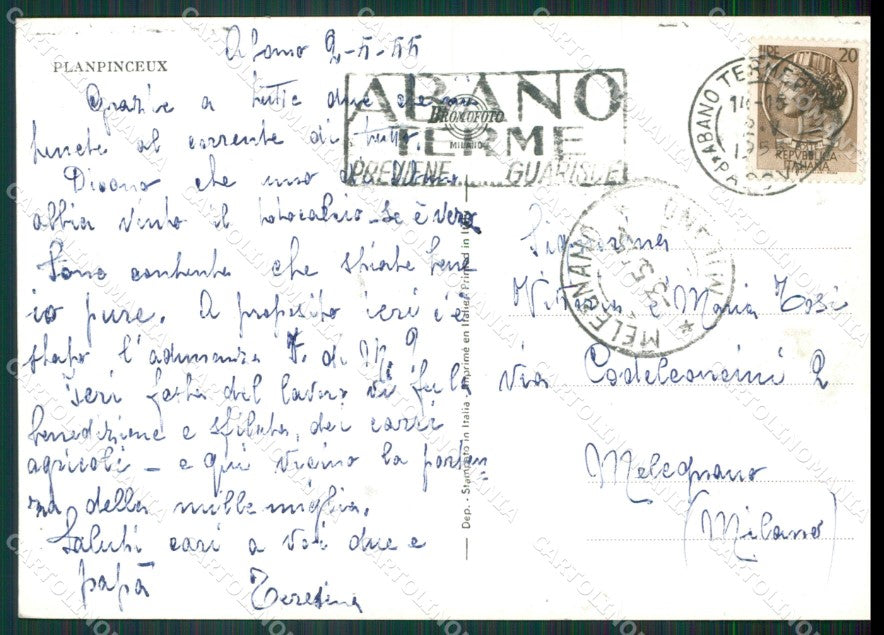 PLANPINCEUX
Abano 2-5-55
Grazie a tutte due che mi
tenete al corrente di tutto.
Dicono che uno di
abbia vinto il totocalcio - se è vero
Sono contenta che stiate bene
io pure. A proposito ieri c'è
stata l'adunanza F. di M.?
Ieri festa del lavoro vi fu la
benedizione e sfilata, dei carri
agricoli - e qui vicino la parten
za della mille miglia.
Saluti cari a voi due e
papà Teresina
ABANO
TERME
PREVIENE GUARISCE
BROMOFOTO
MILANO
Dep. - Stampato in Italia - Imprimé en Italie - Printed in Italy
LIRE 20
REPVBBLICA
ITALIANA
ABANO TERME
14-15
2.V
195
PADOVA
MELEGNANO
MILANO
3 5
Signorina
Vittoria e Maria Tosi
via Codeleoncini 2
Melegnano
(Milano)
CARTOLINOMANIA